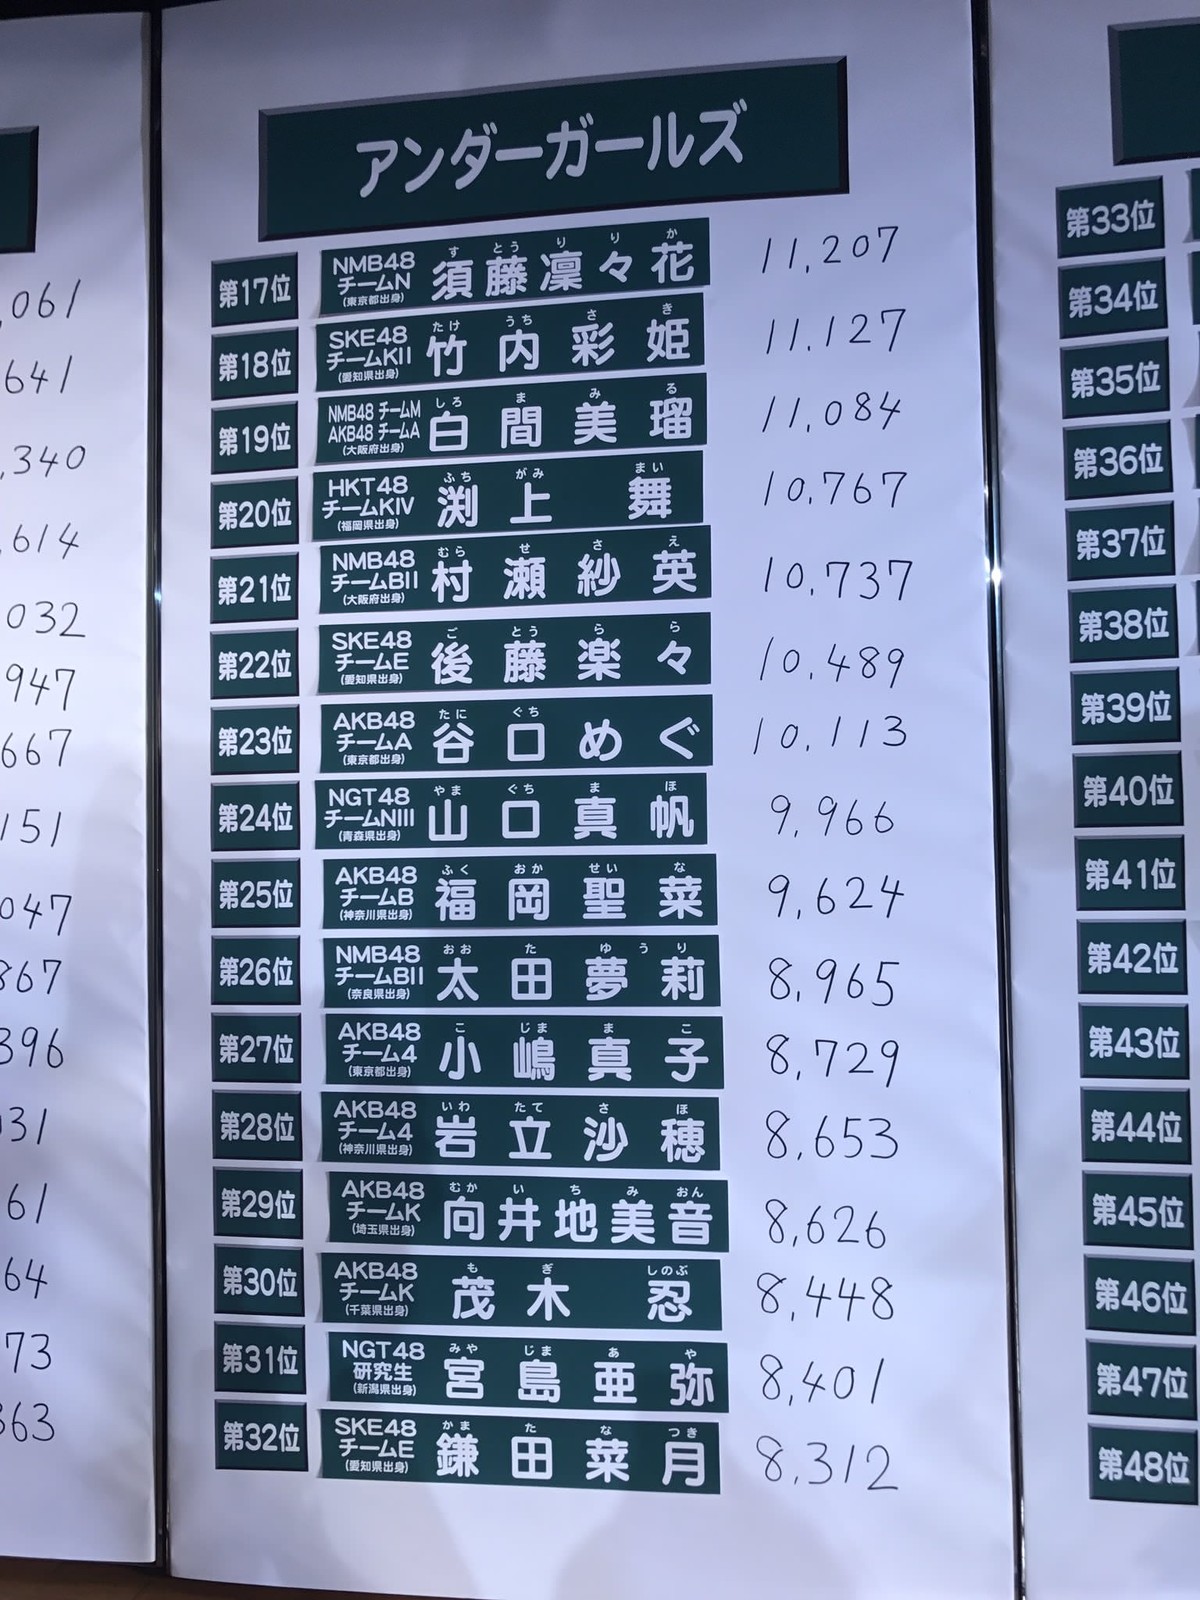 アンダーガールズ
第17位 NMB48 チームN (東京都出身) 須藤凜々花 すとうりりか 11,207
第18位 SKE48 チームKII (愛知県出身) 竹内彩姫 たけうちさき 11,127
第19位 NMB48 チームM AKB48 チームA (大阪府出身) 白間美瑠 しろまみる 11,084
第20位 HKT48 チームKIV (福岡県出身) 渕上舞 ふちがみまい 10,767
第21位 NMB48 チームBII (大阪府出身) 村瀬紗英 むらせさえ 10,737
第22位 SKE48 チームE (愛知県出身) 後藤楽々 ごとうらら 10,489
第23位 AKB48 チームA (東京都出身) 谷口めぐ たにぐち 10,113
第24位 NGT48 チームNIII (青森県出身) 山口真帆 やまぐちまほ 9,966
第25位 AKB48 チームB (神奈川県出身) 福岡聖菜 ふくおかせいな 9,624
第26位 NMB48 チームBII (奈良県出身) 太田夢莉 おおたゆうり 8,965
第27位 AKB48 チーム4 (東京都出身) 小嶋真子 こじままこ 8,729
第28位 AKB48 チーム4 (神奈川県出身) 岩立沙穂 いわたてさほ 8,653
第29位 AKB48 チームK (埼玉県出身) 向井地美音 むかいちみおん 8,626
第30位 AKB48 チームK (千葉県出身) 茂木忍 もぎしのぶ 8,448
第31位 NGT48 研究生 (新潟県出身) 宮島亜弥 みやじまあや 8,401
第32位 SKE48 チームE (愛知県出身) 鎌田菜月 かまたなつき 8,312
,061
641
,340
,614
032
947
667
151
047
867
396
031
61
64
73
363
第33位
第34位
第35位
第36位
第37位
第38位
第39位
第40位
第41位
第42位
第43位
第44位
第45位
第46位
第47位
第48位